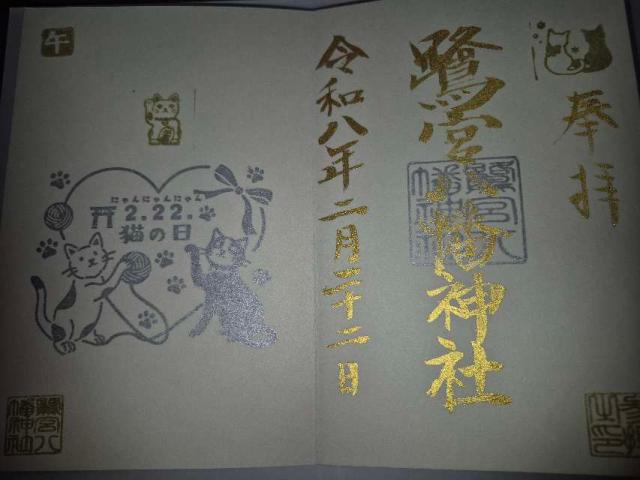 奉拝
鷺宮八幡神社
令和八年二月二十二日
午
にゃんにゃんにゃん
2.22.
猫の日
鷺宮八
幡神社